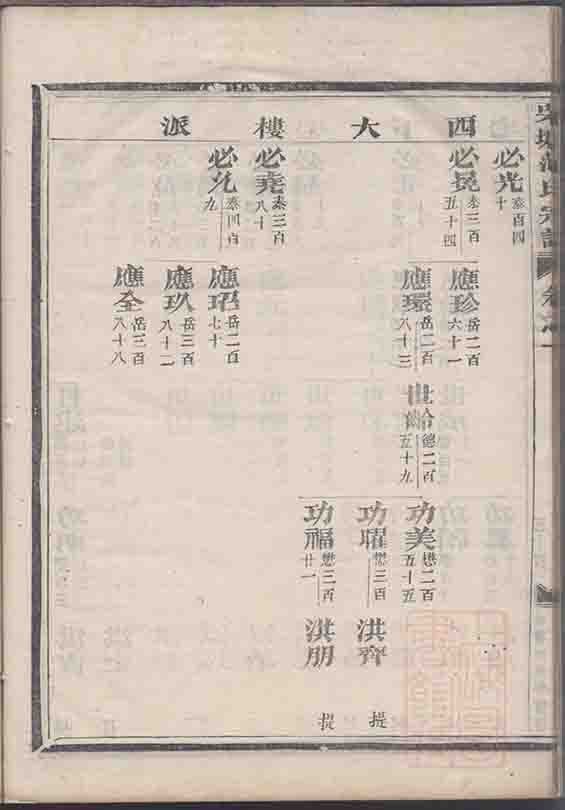 西大樓派
必光 泰百四十
必晃 泰三百五十四
必堯 泰三百八十
必允 泰四百九
應珍 岳二百六十一
應環 岳二百八十三
應玿 岳二百七十
應玖 岳三百八十二
應全 岳三百八十八
德二百五十九
功美 懋二百五十五
功曜 懋三百
功福 懋三百廿一
洪齊 提
洪朋 提
氏宗譜